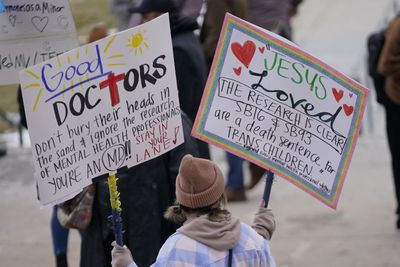 Good
DOCTORS
DON'T bury their heads in
the sand & ignore the research
of MENTAL HEALTH PROFESSIONALS
YOU'RE AN (MD)
STAY IN YOUR
LANE!
JESUS
Loved
THE RESEARCH IS CLEAR
SB16 & SB93
are a death sentence for
TRANS CHILDREN